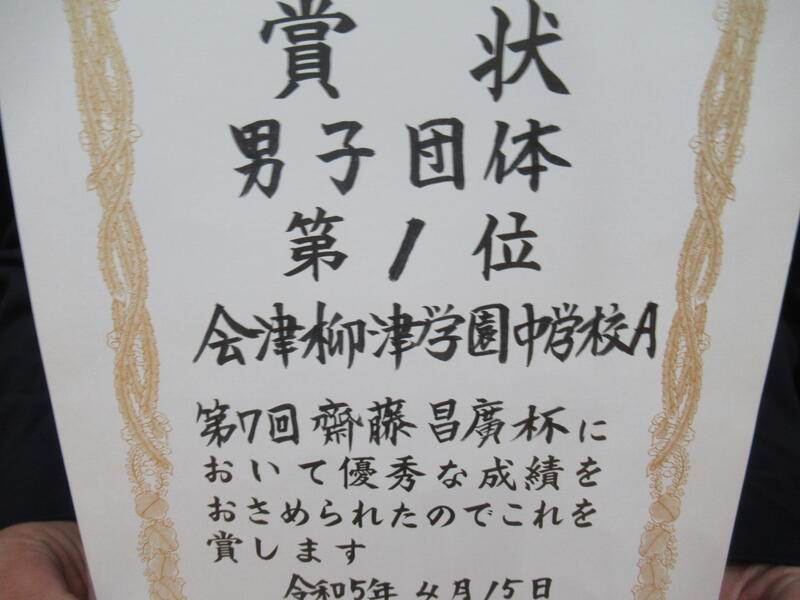 賞状
男子団体
第1位
会津柳津学園中学校A
第7回齋藤昌廣杯に
おいて優秀な成績を
おさめられたのでこれを
賞します
令和5年4月15日